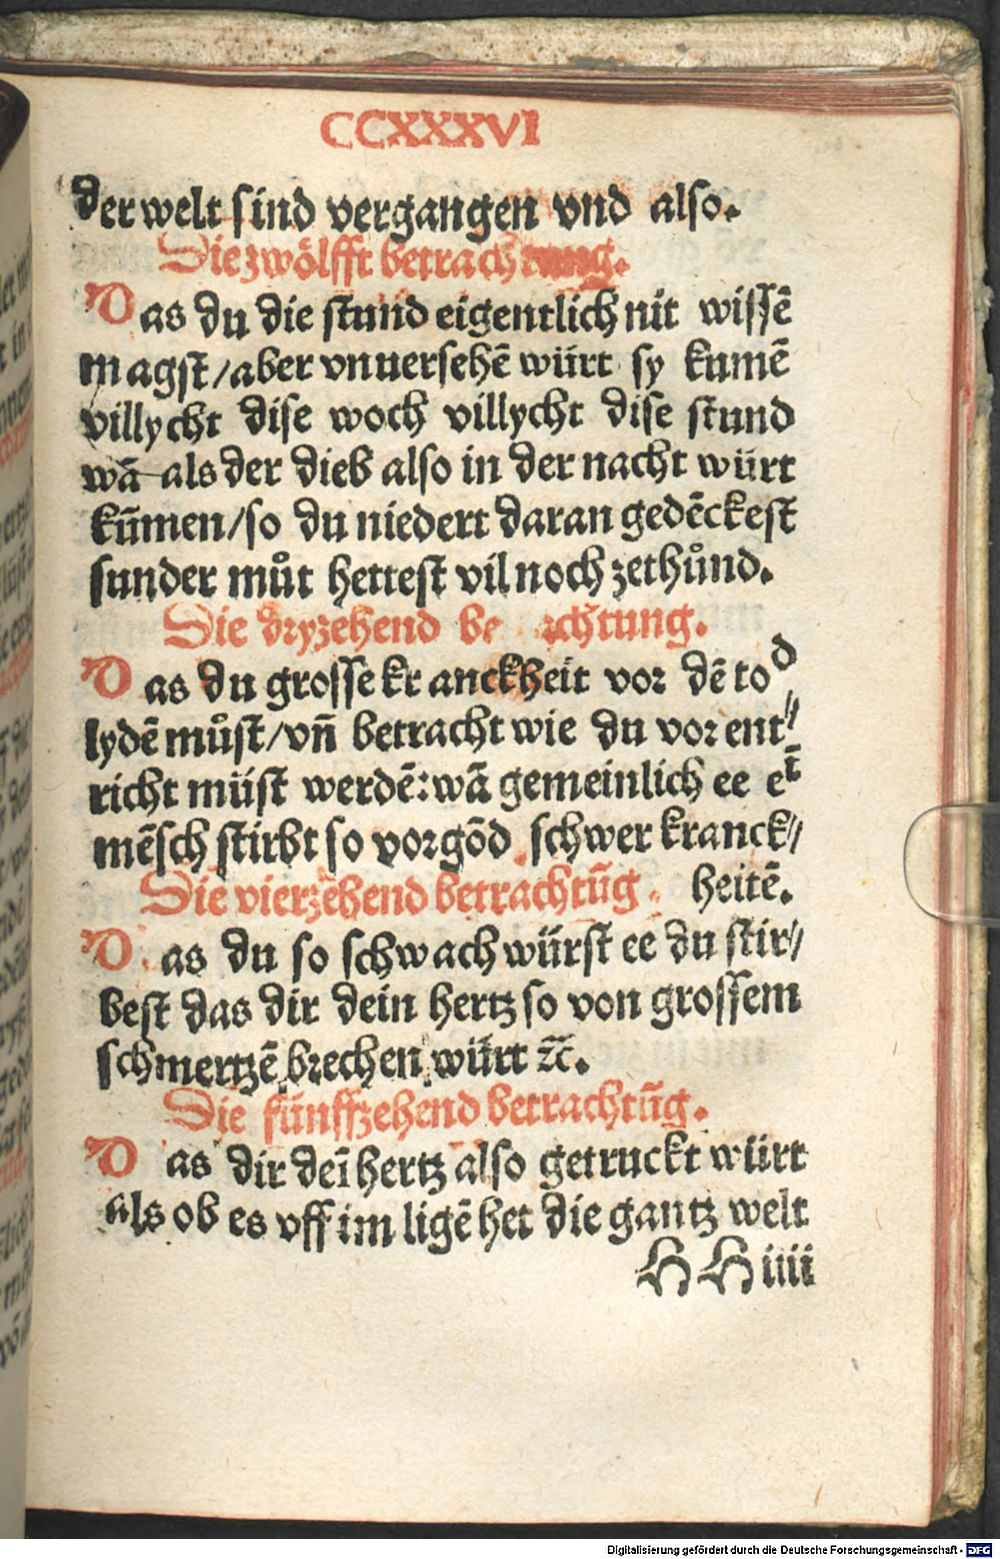 CCXXXVI
der welt sind vergangen vnd also.
Die zwölfft betrachtung.
Das du die stund eigentlich nit wissē
magst/aber vnuersehē würt sy kumē
villycht dise woch villycht dise stund
wā als der dieb also in der nacht würt
kūmen/so du niedert daran gedēckest
sunder můt hettest vil noch zethůnd.
Die dryzehend be achtung.
Das du grosse kranckheit vor dē tod
lydē můst/vn̄ betracht wie du vor ent⸗
richt müst werdē: wā gemeinlich ee eī
mēsch stirbt so vorgōd schwer kranck⸗
Die vierzehend betrachtūg. heitē.
Das du so schwach würst ee du stir⸗
best das dir dein hertz so von grossem
schmertzē brechen würt ⁊c̄.
Die fünffzehend betrachtūg.
Das dir deī hertz also getruckt würt
als ob es vff im ligē het die gantz welt
HH iiii
Digitalisierung gefördert durch die Deutsche Forschungsgemeinschaft - DFG